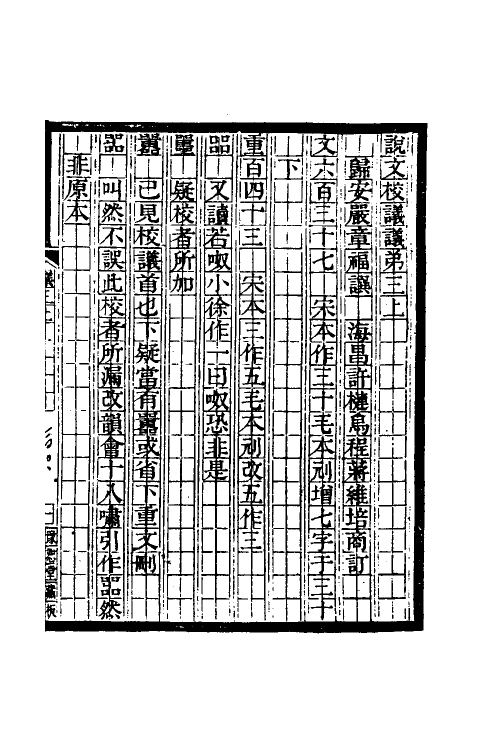 說文校議議弟三上
歸安嚴章福譔 海昌許槤烏程蔣維培商訂
文六百三十七 宋本作三十毛本刓增七字于三十
下
重百四十三 宋本三作五毛本刓改五作三
㗊 又讀若呶小徐作一曰呶恐非是
㗊 疑校者所加
嚻 已見校議首也下疑當有嚻或省下重文刪
㗊 叫然不誤此校者所漏改韻會十八嘯引作㗊然
非原本